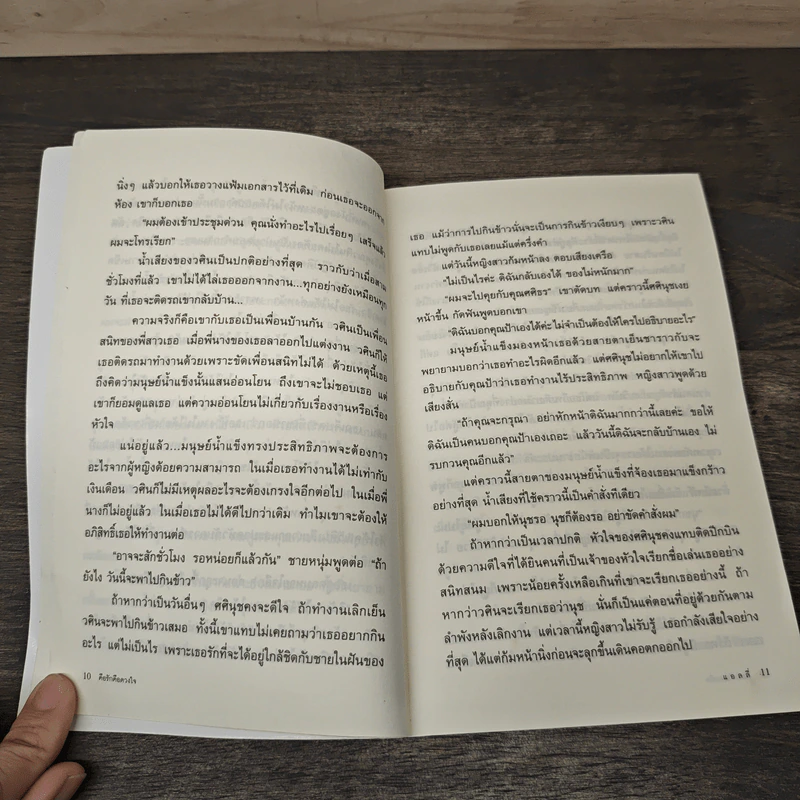 นิ่งๆ แล้วบอกให้เธอวางแฟ้มเอกสารไว้ที่เดิม ก่อนเธอจะออกจาก
ห้อง เขาก็บอกเธอ
“ผมต้องเข้าประชุมด่วน คุณนั่งทำอะไรไปเรื่อยๆ เสร็จแล้ว
ผมจะโทรเรียก”
น้ำเสียงของวศินเป็นปกติอย่างที่สุด ราวกับว่าเมื่อสาม
ชั่วโมงที่แล้ว เขาไม่ได้ไล่เธอออกจากงาน...ทุกอย่างยังเหมือนทุก
วัน ที่เธอจะติดรถเขากลับบ้าน...
ความจริงก็คือเขากับเธอเป็นเพื่อนบ้านกัน วศินเป็นเพื่อน
สนิทของพี่สาวเธอ เมื่อพี่นางของเธอลาออกไปแต่งงาน วศินก็ให้
เธอติดรถมาทำงานด้วยเพราะขัดเพื่อนสนิทไม่ได้ ด้วยเหตุนี้เธอ
ถึงคิดว่ามนุษย์น้ำแข็งนั้นแสนอ่อนโยน ถึงเขาจะไม่ชอบเธอ แต่
เขาก็ยอมดูแลเธอ แต่ความอ่อนโยนไม่เกี่ยวกับเรื่องงานหรือเรื่อง
หัวใจ
แน่อยู่แล้ว...มนุษย์น้ำแข็งทรงประสิทธิภาพจะต้องการ
อะไรจากผู้หญิงด้อยความสามารถ ในเมื่อเธอทำงานได้ไม่เท่ากับ
เงินเดือน วศินก็ไม่มีเหตุผลอะไรจะต้องเกรงใจอีกต่อไป ในเมื่อพี่
นางก็ไม่อยู่แล้ว ในเมื่อเธอไม่ได้ดีไปกว่าเดิม ทำไมเขาจะต้องให้
อภิสิทธิ์เธอให้ทำงานต่อ
“อาจจะสักชั่วโมง รอหน่อยก็แล้วกัน” ชายหนุ่มพูดต่อ “ถ้า
ยังไง วันนี้จะพาไปกินข้าว”
ถ้าหากว่าเป็นวันอื่นๆ ศศินุชคงจะดีใจ ถ้าทำงานเลิกเย็น
วศินจะพาไปกินข้าวเสมอ ทั้งนี้เขาแทบไม่เคยถามว่าเธออยากกิน
อะไร แต่ไม่เป็นไร เพราะเธอรักที่จะได้อยู่ใกล้ชิดกับชายในฝันของ
10 คือรักคือดวงใจ
เธอ แม้ว่าการไปกินข้าวนั่นจะเป็นการกินข้าวเงียบๆ เพราะวศิน
แทบไม่พูดกับเธอเลยแม้แต่ครึ่งคำ
แต่วันนี้หญิงสาวก้มหน้าลง ตอบเสียงเครือ
“ไม่เป็นไรค่ะ ดิฉันกลับเองได้ ของไม่หนักมาก”
“ผมจะไปคุยกับคุณศศิธร” เขาตัดบท แต่คราวนี้ศศินุชเงย
หน้าขึ้น กัดฟันพูดบอกเขา
“ดิฉันบอกคุณป้าเองได้ค่ะไม่จำเป็นต้องให้ใครไปอธิบายอะไร”
มนุษย์น้ำแข็งมองหน้าเธอด้วยสายตาเย็นชาราวกับจะ
พยายามบอกว่าเธอทำอะไรผิดอีกแล้ว แต่ศศินุชไม่อยากให้เขาไป
อธิบายกับคุณป้าว่าเธอทำงานไร้ประสิทธิภาพ หญิงสาวพูดด้วย
เสียงสั่น
“ถ้าคุณจะกรุณา อย่าหักหน้าดิฉันมากกว่านี้เลยค่ะ ขอให้
ดิฉันเป็นคนบอกคุณป้าเองเถอะ แล้ววันนี้ดิฉันจะกลับบ้านเอง ไม่
รบกวนคุณอีกแล้ว”
แต่คราวนี้สายตาของมนุษย์น้ำแข็งที่จ้องเธอมาแข็งกร้าว
อย่างที่สุด น้ำเสียงที่ใช้คราวนี้เป็นคำสั่งทีเดียว
“ผมบอกให้นุชรอ นุชก็ต้องรอ อย่าขัดคำสั่งผม”
ถ้าหากว่าเป็นเวลาปกติ หัวใจของศศินุชคงแทบติดปีกบิน
ด้วยความดีใจที่ได้ยินคนที่เป็นเจ้าของหัวใจเรียกชื่อเล่นเธออย่าง
สนิทสนม เพราะน้อยครั้งเหลือเกินที่เขาจะเรียกเธออย่างนี้ ถ้า
หากว่าวศินจะเรียกเธอว่านุช นั่นก็เป็นแค่ตอนที่อยู่ด้วยกันตาม
ลำพังหลังเลิกงาน แต่เวลานี้หญิงสาวไม่รับรู้ เธอกำลังเสียใจอย่าง
ที่สุด ได้แต่ก้มหน้านิ่งก่อนจะลุกขึ้นเดินคอตกออกไป
แอลลี่ 11